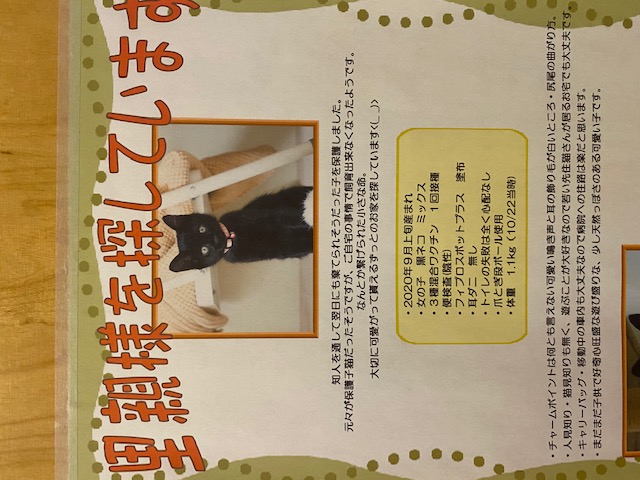 里親様を探しています
知人を通して翌日にも棄てられそうだった子を保護しました。
元々が保護子猫だったそうですが、ご自宅の事情で飼育出来なくなったようです。
なんとか繋げられた小さな命。
大切に可愛がって貰えるずっとのお家を探しています<(_ _)>
・2020年9月上旬産まれ
・女の子　黒ネコ　ミックス
・3種混合ワクチン　1回接種
・便検査(陰性)
・フィプロスポットプラス　塗布
・耳ダニ　無し
・トイレの失敗は全く心配なし
・爪とぎ段ボール使用
・体重　1.1kg（10/22当時）
・チャームポイントは何とも言えない可愛い鳴き声と耳の飾り毛が白いところ・尻尾の曲がり方。
・人見知り・猫見知りも無く、遊ぶことが大好きなので若い先住猫さんが居るお宅でも大丈夫です。
・キャリーバッグ・移動中の車内も大丈夫なので病院への往路は楽だと思います。
・まだまだ子供で好奇心旺盛な遊び盛りな、少し天然っぽさのある可愛い子です。